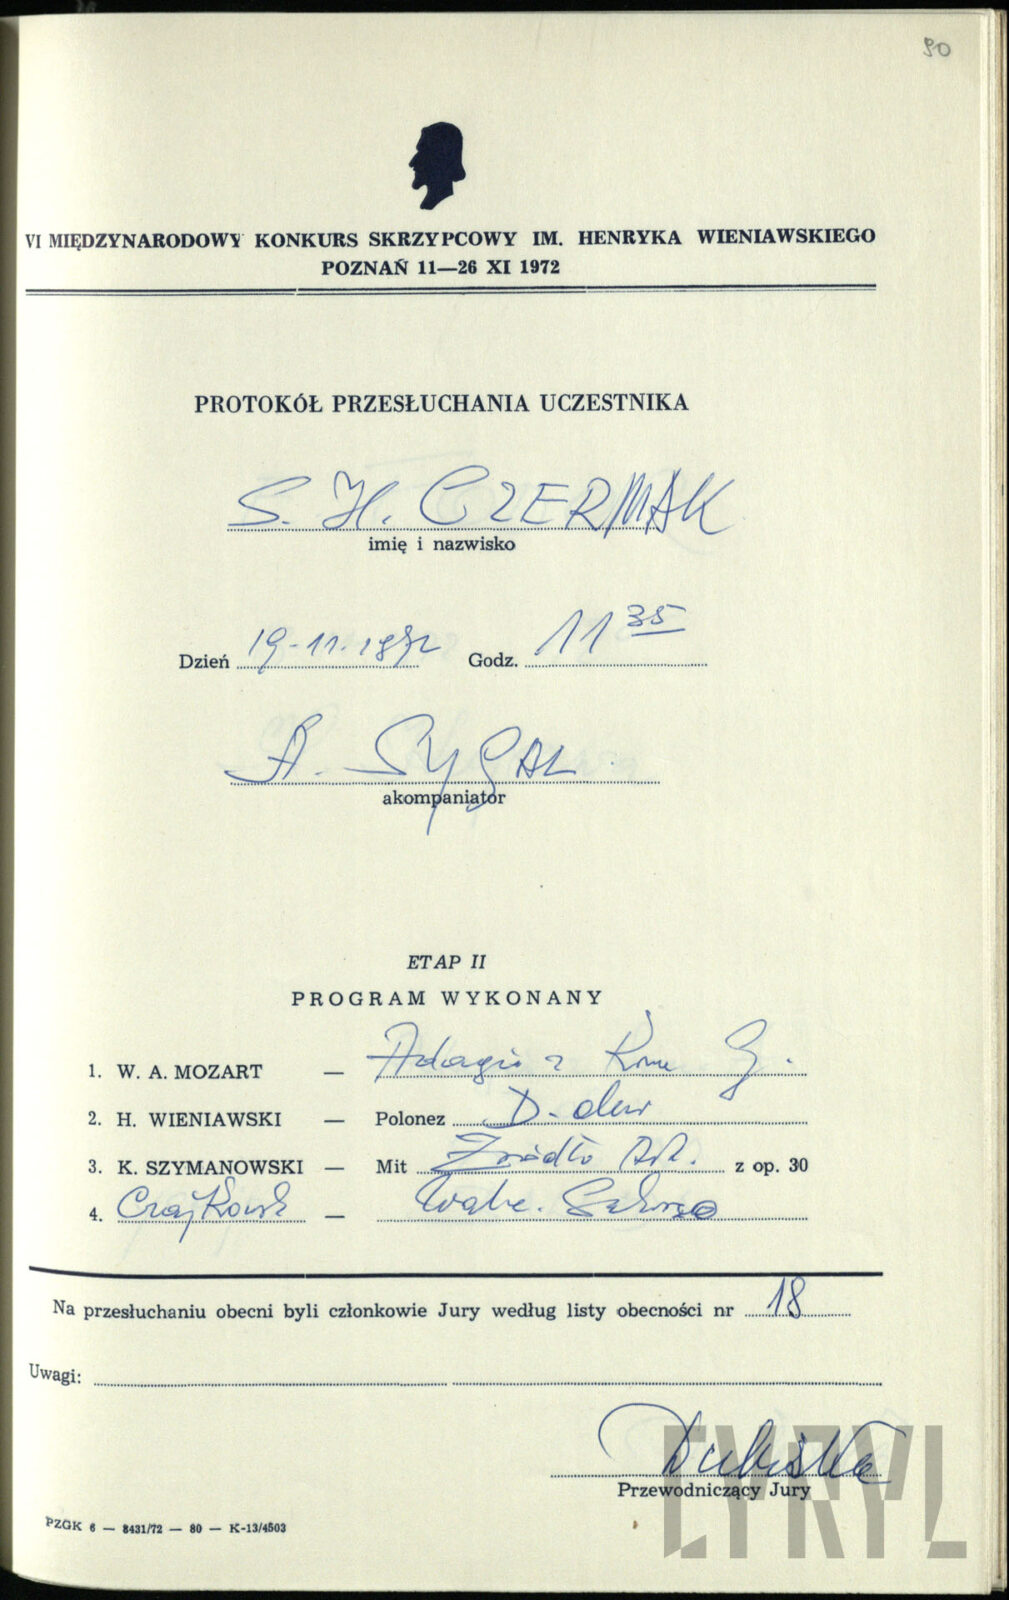 90
VI MIĘDZYNARODOWY KONKURS SKRZYPCOWY IM. HENRYKA WIENIAWSKIEGO
POZNAŃ 11—26 XI 1972
PROTOKÓŁ PRZESŁUCHANIA UCZESTNIKA
S. H. CZERMAK
imię i nazwisko
Dzień 19-11-1972 Godz. 11 35
A. SYGAL
akompaniator
ETAP II
PROGRAM WYKONANY
1. W. A. MOZART — Adagio z G.
2. H. WIENIAWSKI — Polonez D-dur
3. K. SZYMANOWSKI — Mit Źródło Ar. z op. 30
4. Czajkowski — Walc. Scherzo
Na przesłuchaniu obecni byli członkowie Jury według listy obecności nr 18
Uwagi:
Dubiska
Przewodniczący Jury
PZGK 6 — 8431/72 — 80 — K-13/4503
CYRYL